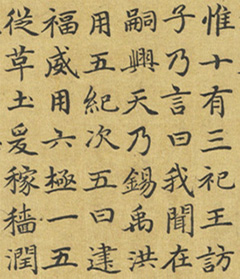 惟十有三祀王訪
子乃言曰我聞在
嗣興天乃錫禹洪
用五紀次五曰建
福威用六極一五
從革土爰稼穡潤